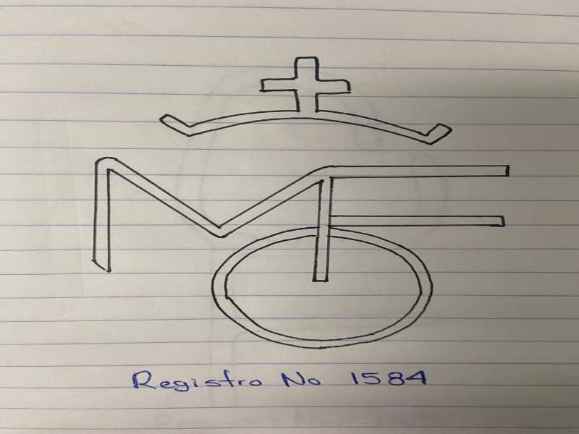 MF
Registro No 1584